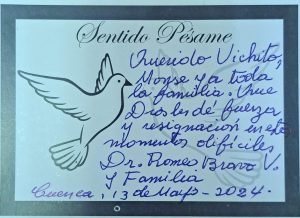 Sentido Pésame
Querido Vichito,
Monse y a toda
la familia. Que
Dios les dé fuerza
y resignación en este
momentos difíciles
Dr. Romeo Bravo V.
y Familia
Cuenca, 13 de Mayo - 2024.